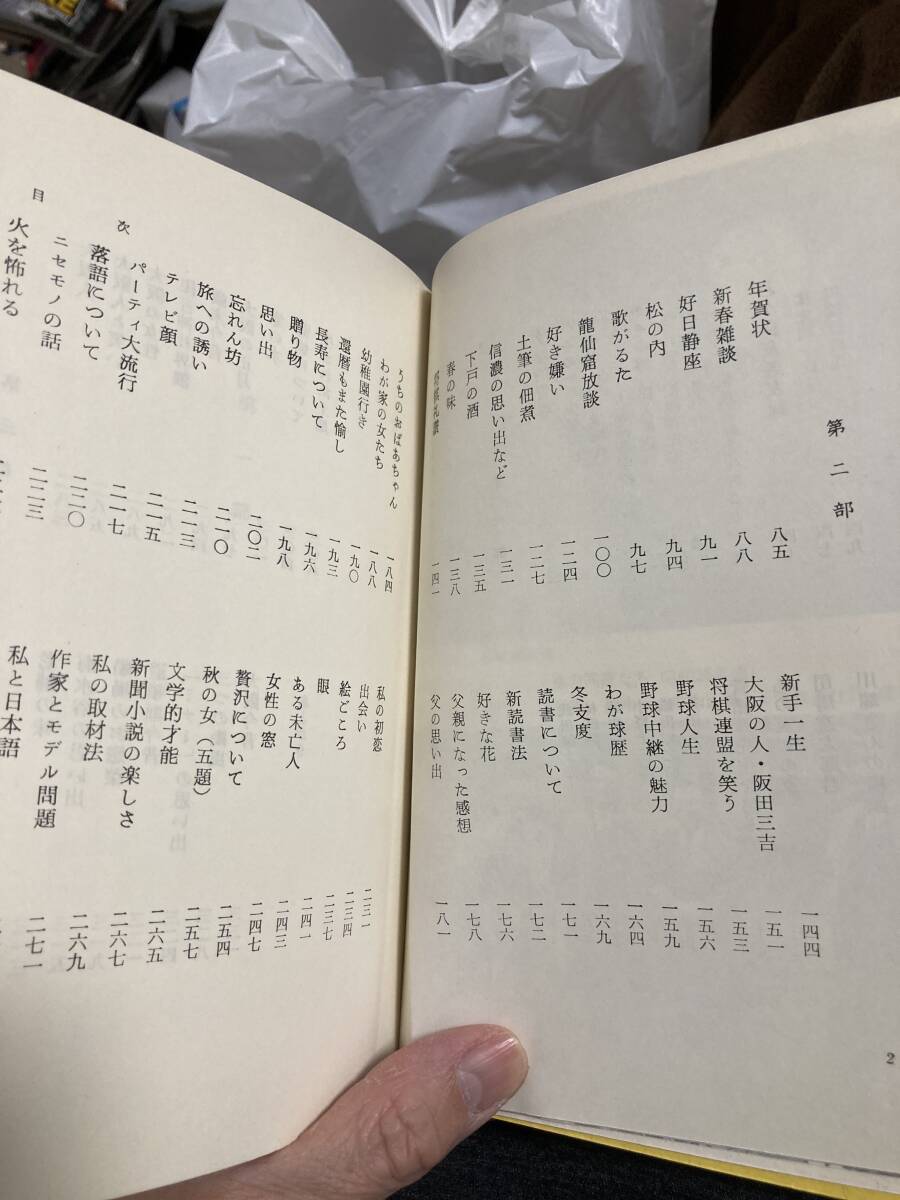 第二部
年賀状 八五
新春雑談 八八
好日静座 九一
松の内 九四
歌がるた 九七
龍仙窟放談 一〇〇
好き嫌い 一二四
土筆の佃煮 一二七
信濃の思い出など 一三一
下戸の酒 一三五
春の味 一三八
一四一
新手一生 一四四
大阪の人・阪田三吉 一五一
将棋連盟を笑う 一五三
野球人生 一五六
野球中継の魅力 一五九
わが球歴 一六四
冬支度 一六九
読書について 一七一
新読書法 一七二
好きな花 一七六
父親になった感想 一七八
父の思い出 一八一
2
うちのおばあちゃん 一八四
わが家の女たち 一八八
幼稚園行き 一九〇
還暦もまた愉し 一九三
長寿について 一九六
贈り物 一九八
思い出 二〇二
忘れん坊 二一〇
旅への誘い 二一三
テレビ顔 二一五
パーティ大流行 二一七
落語について 二二〇
ニセモノの話 二二三
火を怖れる
私の初恋 二三一
出会い 二三四
絵ごころ 二三七
眼 二四一
ある未亡人 二四三
女性の窓 二四七
贅沢について 二五四
秋の女（五題） 二五七
文学的才能 二六五
新聞小説の楽しさ 二六七
私の取材法 二六九
作家とモデル問題 二七一
私と日本語
目次